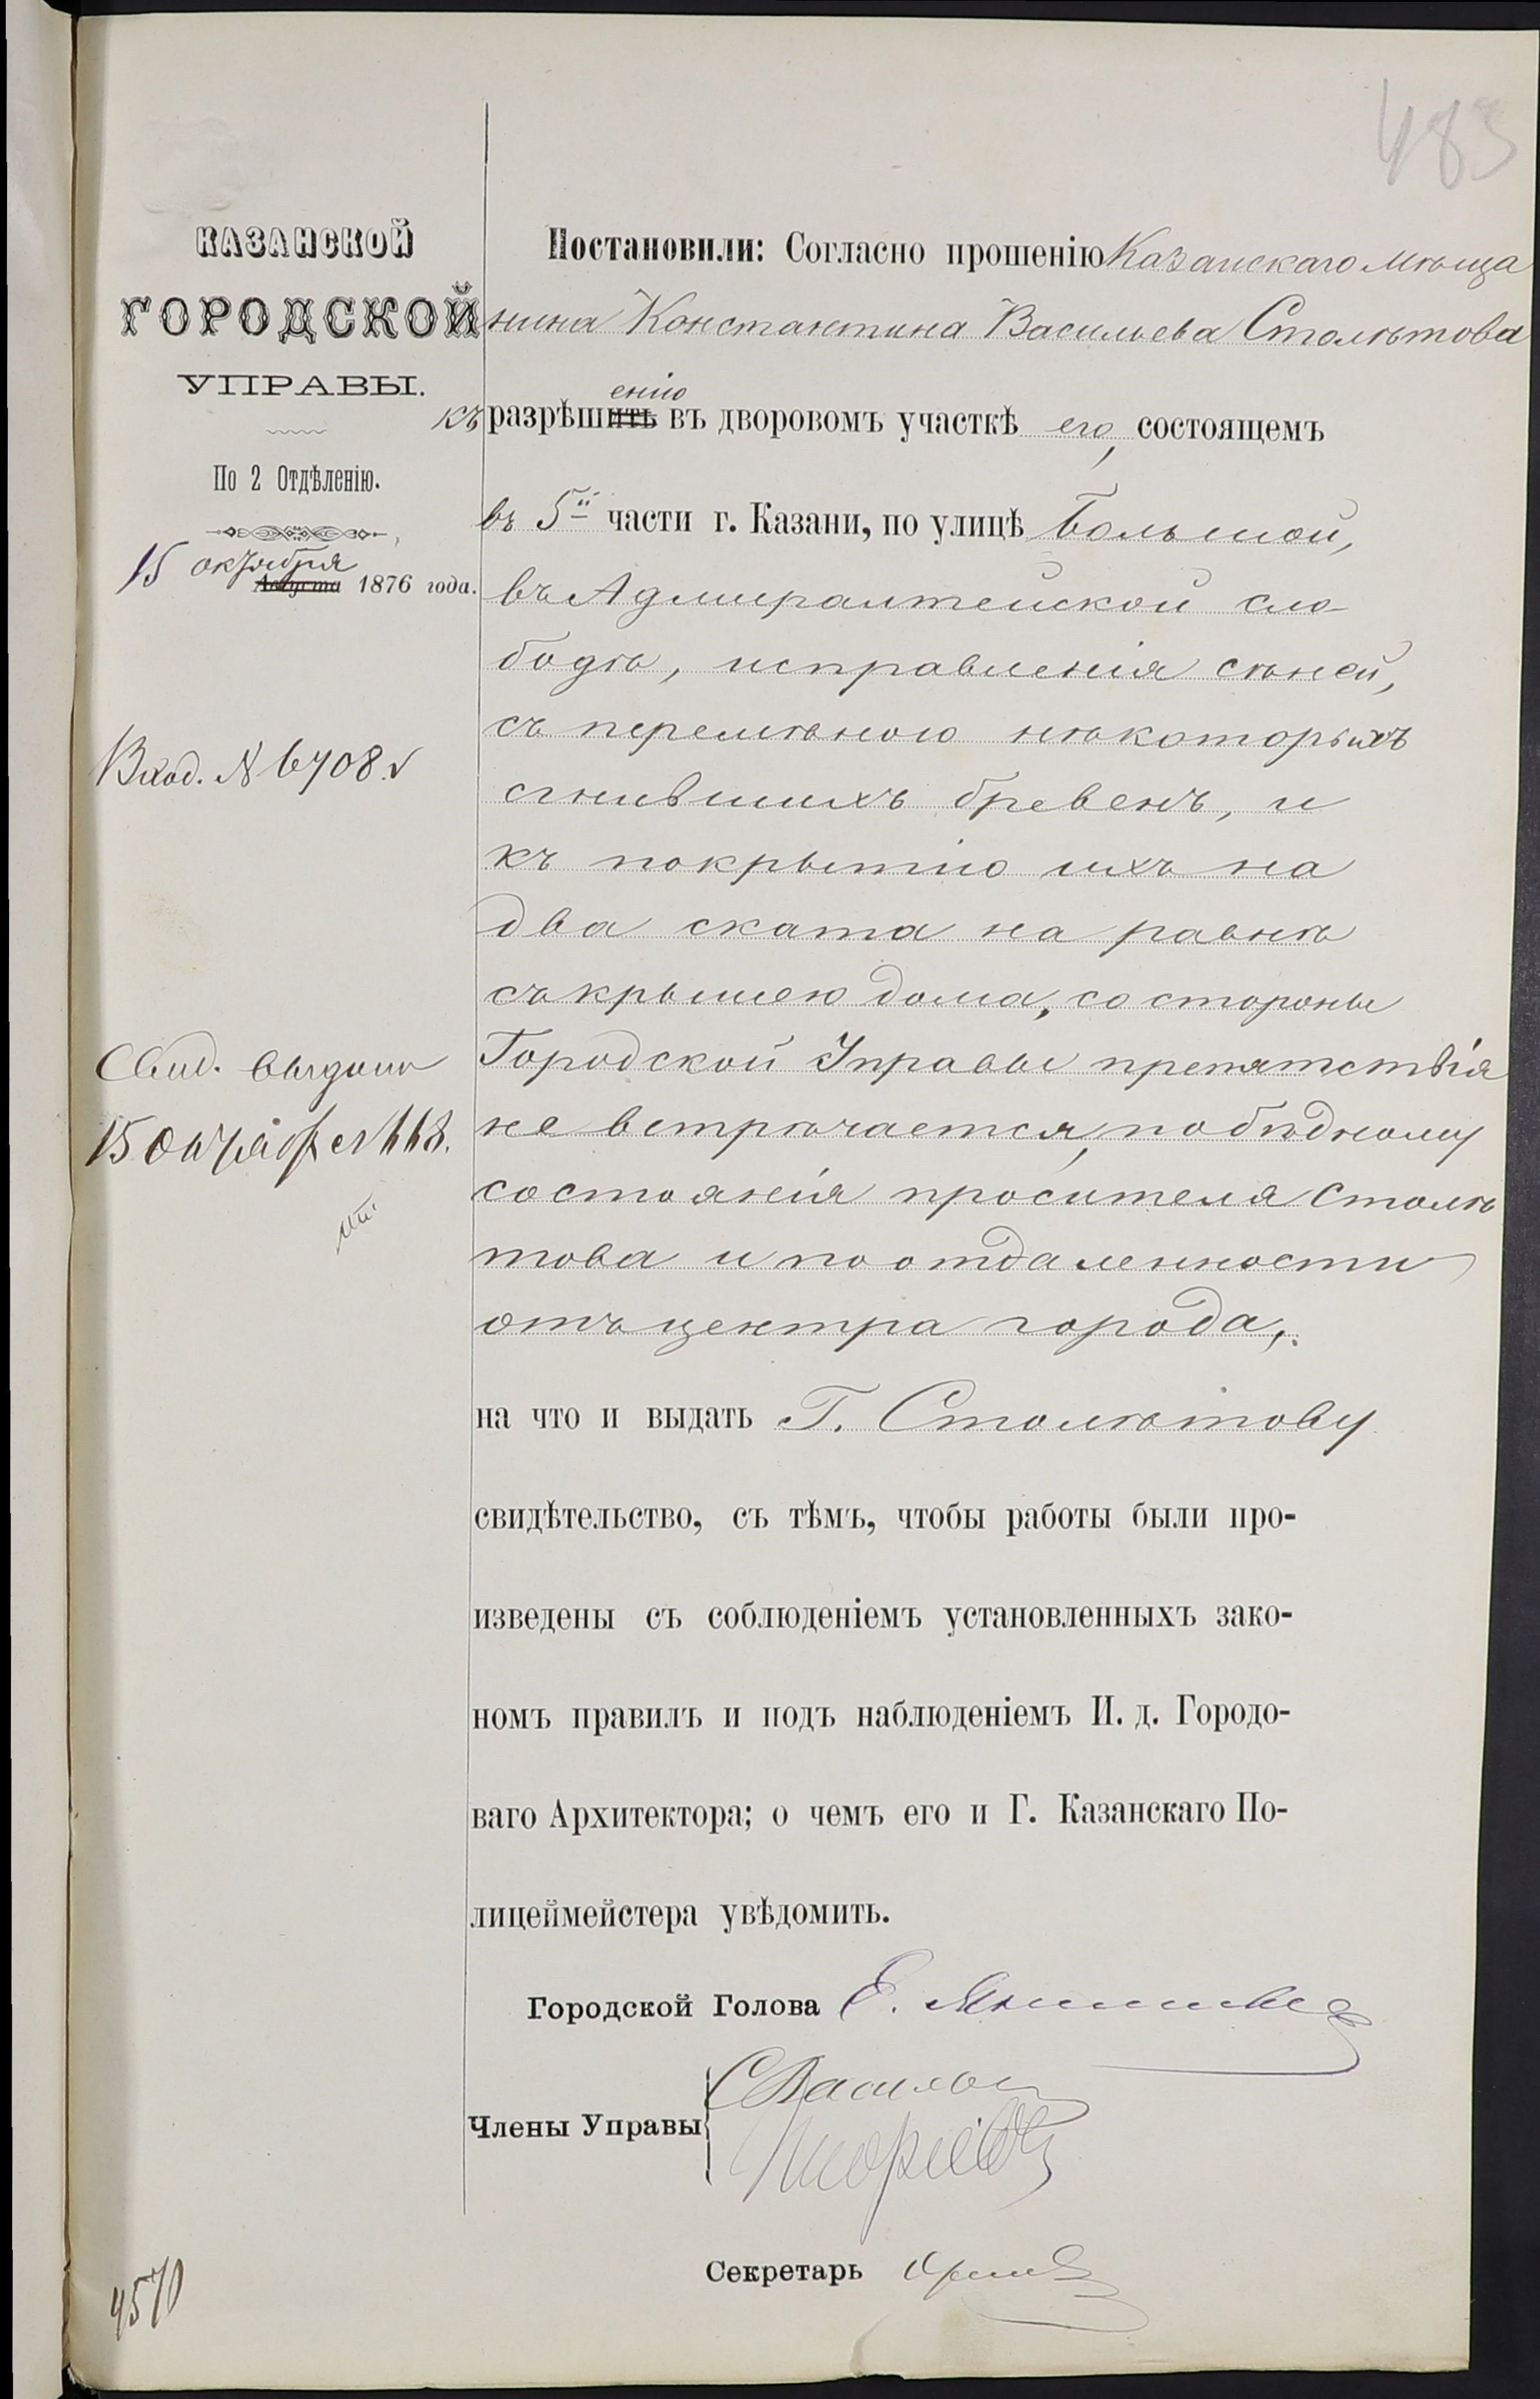 483
КАЗАНСКОЙ
ГОРОДСКОЙ
УПРАВЫ.
По 2 Отдѣленію.
15 октября
Августа 1876 года.
Вход. № 6708.
Свид. выдано
15 Октября № 668.
4570
Постановили: Согласно прошенію Казанскаго мѣща
нина Константина Васильева Столѣтова
енію
къ разрѣшить въ дворовомъ участкѣ его, состоящемъ
въ 5й части г. Казани, по улицѣ Большой,
въ Адмиралтейской сло-
бодѣ, исправленія сѣней,
съ перемѣною нѣкоторыхъ
сгнившихъ бревенъ, и
къ покрытію ихъ на
два ската на равнѣ
съ крышею дома, со стороны
Городской Управы препятствія
не встрѣчается, по бѣдному
состоянія просителя Столѣ
това и по отдаленности
отъ центра города,
на что и выдать Г. Столѣтову
свидѣтельство, съ тѣмъ, чтобы работы были про-
изведены съ соблюденіемъ установленныхъ зако-
номъ правилъ и подъ наблюденіемъ И. д. Городо-
ваго Архитектора; о чемъ его и Г. Казанскаго По-
лицеймейстера увѣдомить.
Городской Голова Е. Янишевс
Члены Управы
СВасильев
Секретарь